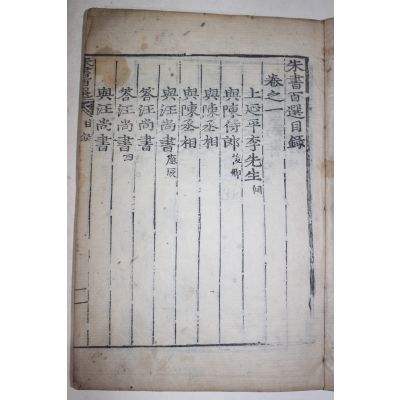 朱書百選目錄
卷之一
上延平李先生侗
與陳侍郎俊卿
與陳丞相
與陳丞相
與汪尚書應辰
答汪尚書
答汪尚書四
與汪尚書
朱書百選 目錄 一